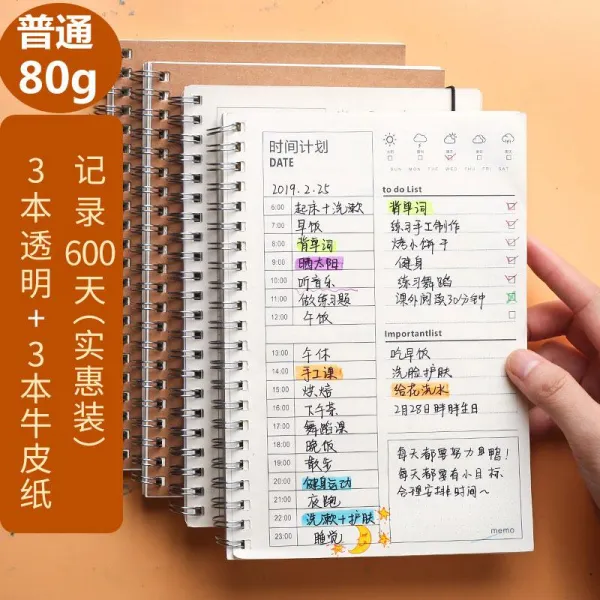 普通
80g
记录600天(实惠装)
3本透明+3本牛皮纸
时间计划
DATE
2019.2.25
6:00 起床+洗漱
7:00 早饭
8:00 背单词
9:00 晒太阳
10:00 听音乐
11:00 做练习题
12:00 午饭
13:00 午休
14:00 手工课
15:00 烘焙
16:00 下午茶
17:00 舞蹈课
18:00 晚饭
19:00 散步
20:00 健身运动
21:00 夜跑
22:00 洗漱+护肤
23:00 睡觉
SUN MON TUE WED THU FRI SAT
to do List
背单词
练习手工制作
烤小饼干
健身
练习舞蹈
课外阅读30分钟
Importantlist
吃早饭
洗脸护肤
给花浇水
2月28日胖胖生日
每天都要努力早鸭!
每天都要有小目标
合理安排时间~
memo